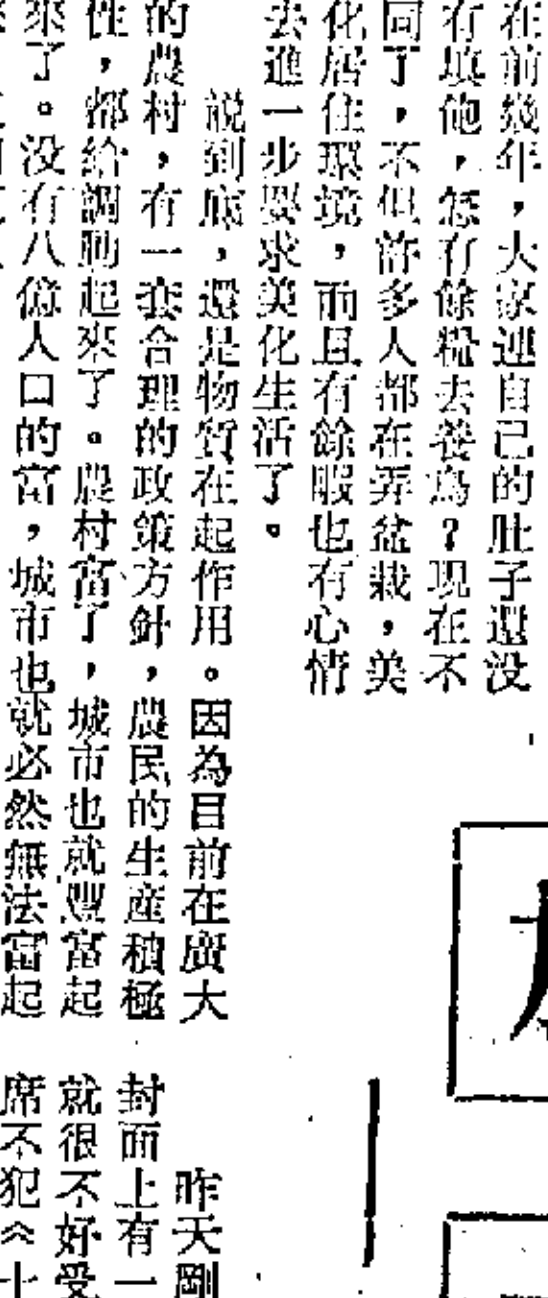 在前幾年，大家連自己的肚子還没
有填飽，怎有餘糧去養鳥？現在不
同了，不但許多人都在弄盆栽，美
化居住環境，而且有餘暇也有心情
去進一步要求美化生活了。
説到底，還是物質在起作用。因為目前在廣大
的農村，有一套合理的政策方針，農民的生産積極
性，都給調動起來了。農村富了，城市也就豐富起
來了。没有八億人口的富，城市也就必然無法富起
昨天剛
封面上有一
就很不好受
席不犯《十